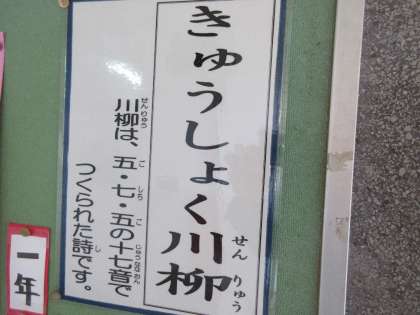 きゅうしょく川柳
せんりゅう
川柳は、五・七・五の十七音で
せんりゅう
ご
しち
ご
じゅうななおん
つくられた詩です。
し
一年